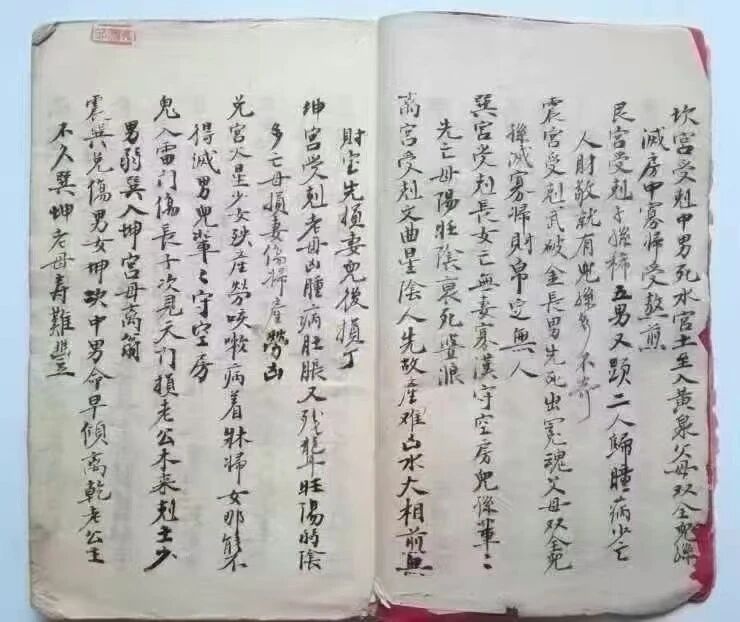 坎宮受剋中男死水宮土至入黄泉父母双全兒孫
滅房中寡婦受熬煎
艮宮受剋子孫稀五男又顕二人歸瞳病少亡
人財敗就有兒孫多不
震宮受剋武破金長男先死出冤魂父母双全兒
孫滅寡婦財帛定無人
巽宮受剋長女亡無妻寡漢守空房兒孫輩〻
先亡母陽旺陰衰死
离宮受剋文曲星陰人先故産难凶水大相煎無
財宝先損妻兒後損丁
坤宮受剋老母凶腫病肚脹又残輩旺陽的陰
多亡母損妻傷婦産勞凶
兑宮火星少女殃産勞咳嗽病着牀婦女那能不
得滅男兒輩〻守空房
鬼入雷门傷長子次見天门損老公木来剋土少
男弱巽入坤宮母离翁
震巽兑傷男女坤坎中男命早傾离乾老公主
不久巽坤老母寿難